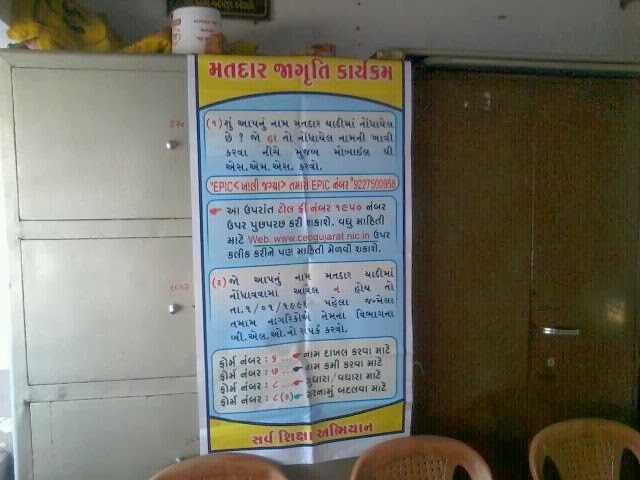 મતદાર જાગૃતિ કાર્યક્રમ
(૧) શું આપનું નામ મતદાર યાદીમાં નોંધાયેલ
છે ? જો હા તો નોંધાયેલ નામની ખાત્રી
કરવા નીચે મુજબ મોબાઈલ થી
એસ.એમ.એસ. કરવો.
"EPIC< ખાલી જગ્યા> તમારો EPIC નંબર" 9227500958
આ ઉપરાંત ટોલ ફ્રી નંબર ૧૯૫૦ નંબર
ઉપર પુછપરછ કરી શકાશે. વધુ માહિતી
માટે Web. www.ceogujarat.nic.in ઉપર
કલીક કરીને પણ માહિતી મેળવી શકાશે.
(૨) જો આપનું નામ મતદાર યાદીમાં
નોંધાવવામાં આવેલ ન હોય તો
તા.૧/૦૧/૧૯૯૬ પહેલા જન્મેલા
તમામ નાગરિકોએ તેમના વિભાગના
બી.એલ.ઓ.નો સંપર્ક કરવો.
ફોર્મ નંબર : ૬ ... નામ દાખલ કરવા માટે
ફોર્મ નંબર : ૭ ... નામ કમી કરવા માટે
ફોર્મ નંબર : ૮ ... સુધારા/વધારા માટે
ફોર્મ નંબર : ૮(ક) સરનામું બદલવા માટે
સર્વ શિક્ષા અભિયાન